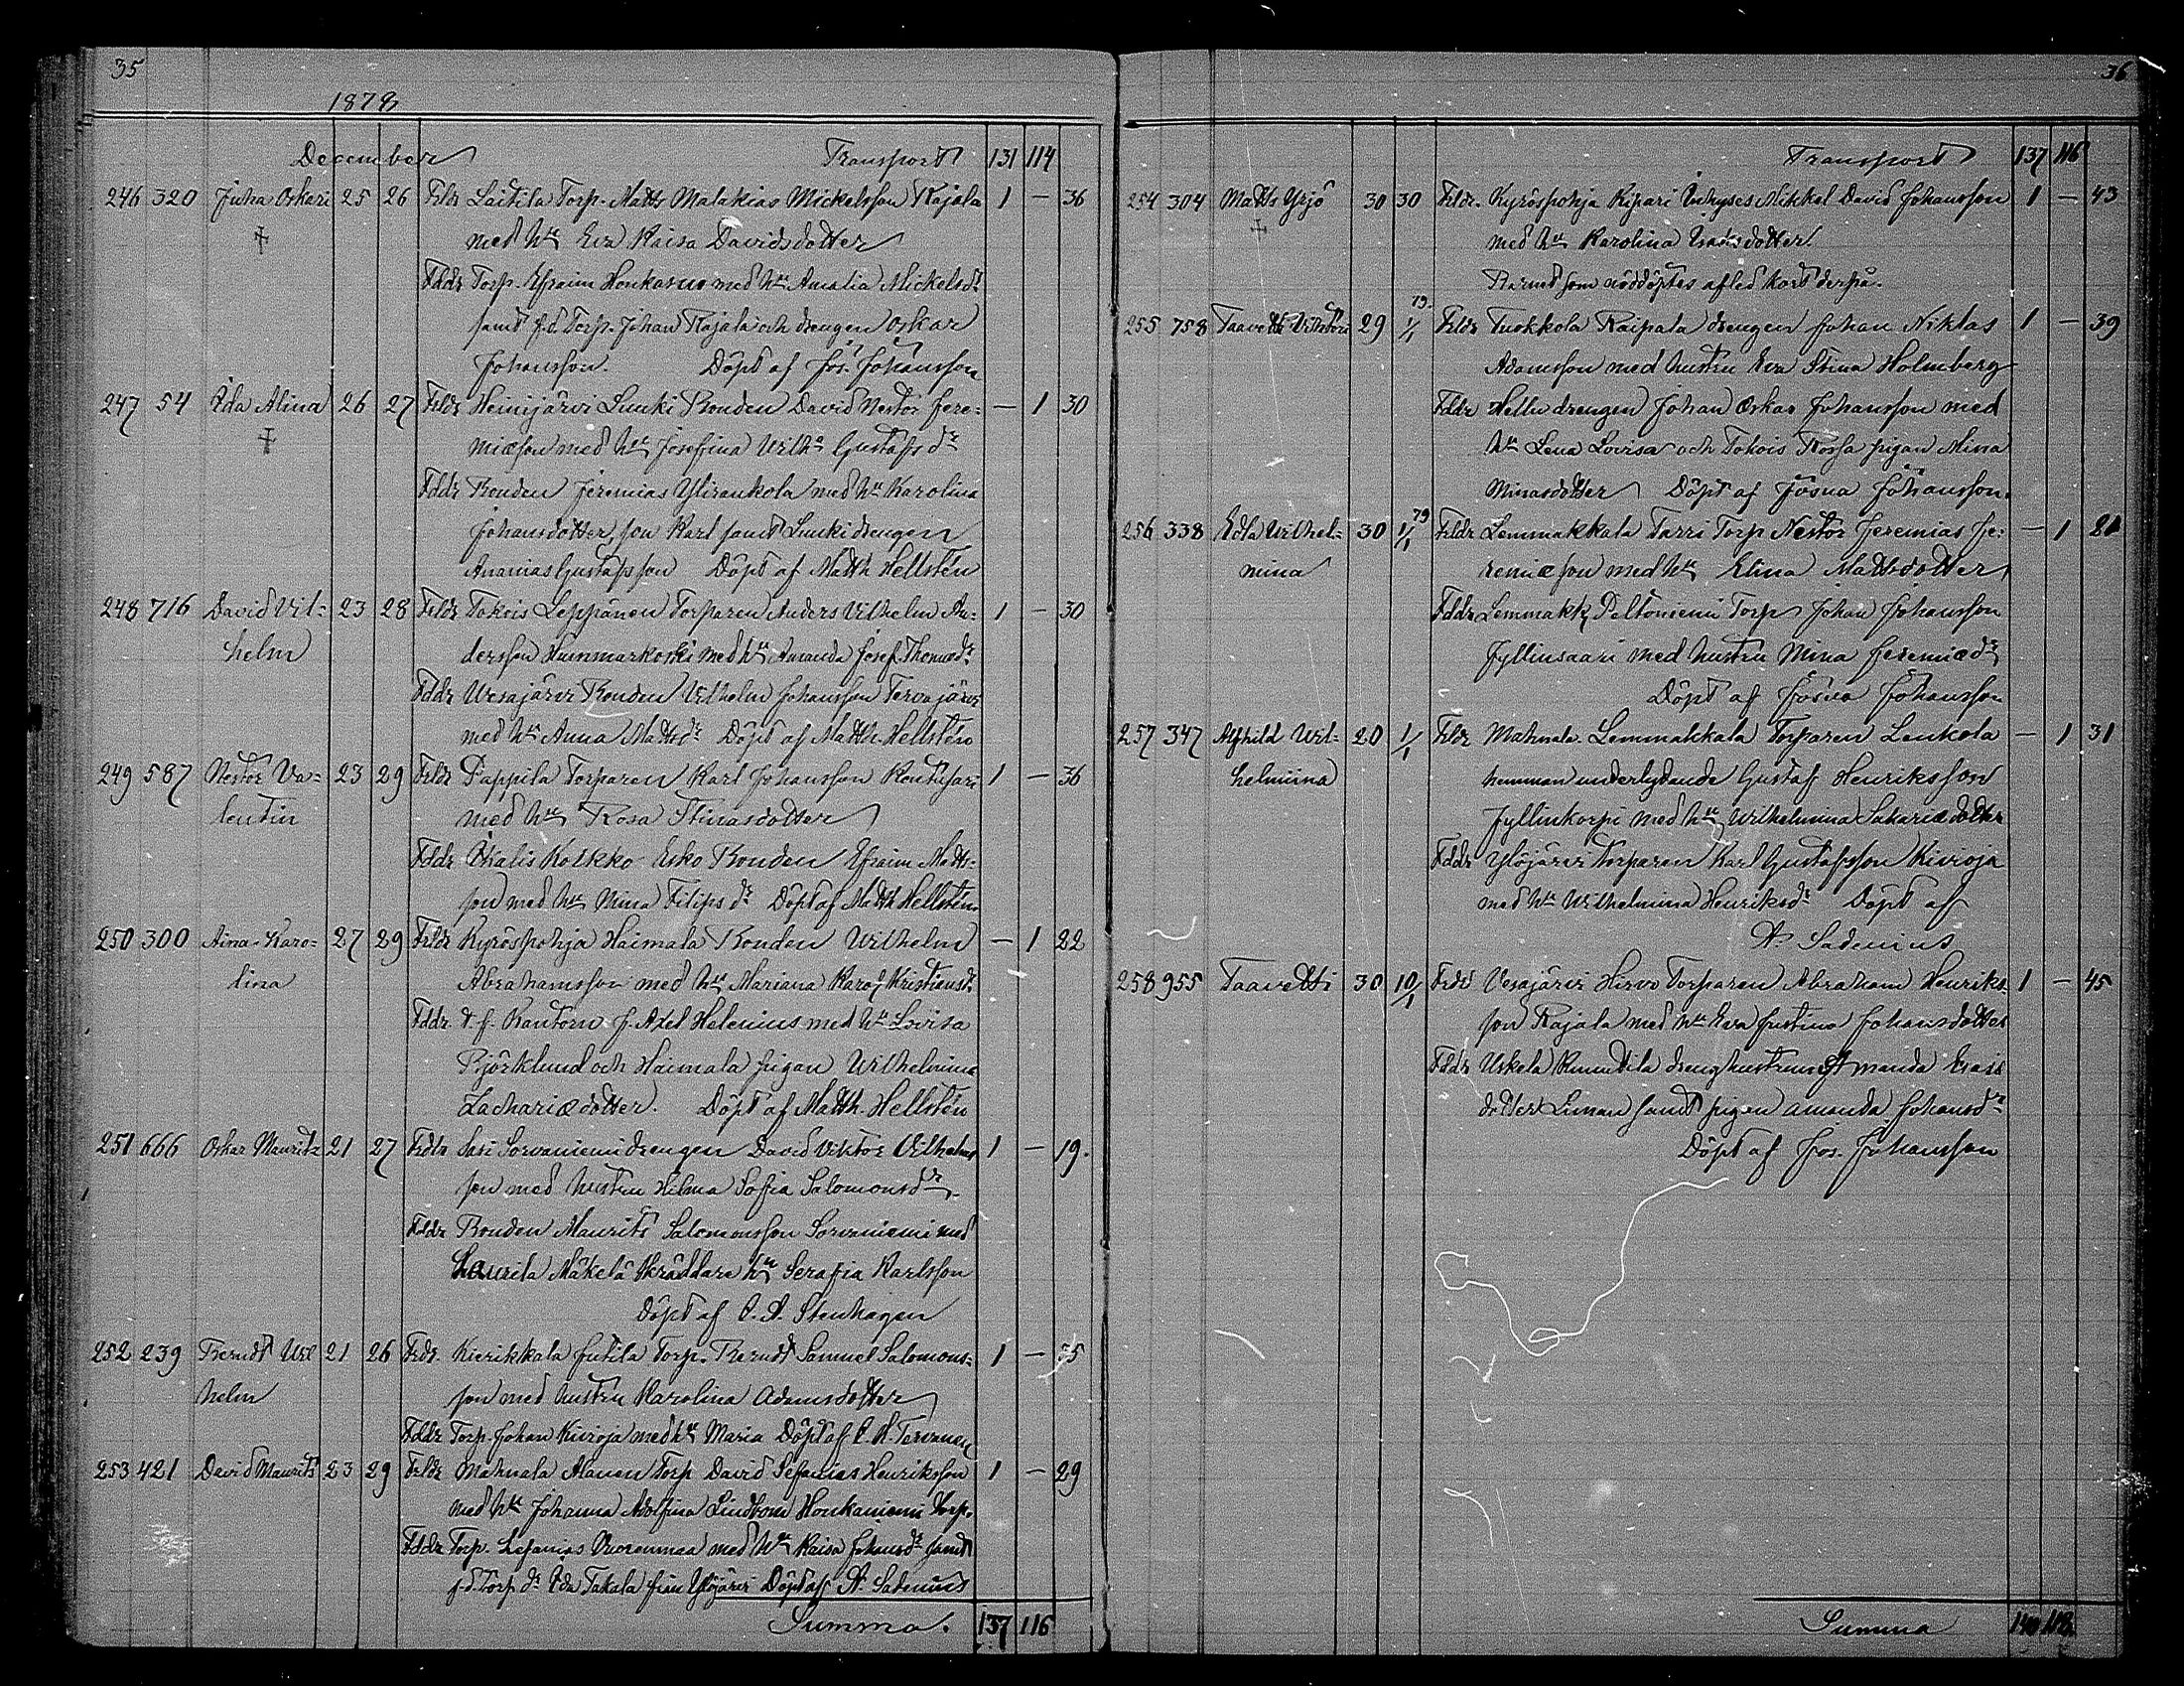 35
1878
December Transport 131 114
246 320 Juha Oskari 25 26 Frldr Laitila Torp. Matts Malakias Mickelsson Rajala 1 — 36
med hu Eva Kaisa Davidsdotter
Fddr Torp. Efraim Honkasuo med hu Amalia Mickelsdr
samt f.d. Torp. Johan Rajala och drengen Oskar
Johansson. Döpt af Jos. Johansson
247 54 Ida Alina 26 27 Frldr Heinijärvi Luuki Bonden David Nestor Jere= — 1 30
miæson med hu Josefina Vilha Gustafsdr
Fddr Bonden Jeremias Ylirankola med hu Karolina
Johansdotter, son Karl samt Luuki drengen
Ananias Gustafsson Döpt af Matth Hellstén
248 716 David Vil= 23 28 Frldr Tokois Leppänen Torparen Anders Vilhelm An= 1 — 30
helm dersson Hummarkoski med hu Amanda Josef. Thomædr
Fddr Vesajärvi Bonden Vilhelm Johansson Tervajärvi
med hu Anna Mattsdr Döpt af Matth. Hellstén
249 587 Nestor Va= 23 29 Frldr Pappila Torparen Karl Johansson Kontusari 1 — 36
lentin med hu Rosa Stinasdotter
Fddr Kalis Kolkko Esko Bonden Efraim Matts=
son med hu Mina Filipsdr Döpt af Matth Hellstén
250 300 Aina Karo= 27 29 Frldr Kyröspohja Haimala Bonden Wilhelm — 1 22
lina Abrahamsson med hu Mariana Karol. Kristiansdr
Fddr t.f. Kantorn J. Axel Helenius med hu Lovisa
Björklund och Haimala pigan Wilhelmina
Zachariædotter. Döpt af Matth. Hellstén
251 666 Oskar Mauritz 21 27 Frldr Sasi Sorvaniemi drengen David Viktor Vilhelms 1 — 19.
son med hustru Hilma Sofia Salomonsdr
Fddr Bonden Maurits Salomonsson Sorvaniemi med
Laurila Mäkelä Skräddare hu Serafia Karlsson
Döpt af C. A. Stenhagen
252 239 Berndt Vil 21 26 Frldr. Kierikkala Jutila Torp. Berndt Samuel Salomons= 1 — 35
helm son med hustru Karolina Adamsdotter
Fddr Torp. Johan Kivioja med hu Maria Döpt af C. A. Tervanen
253 421 David Maurits 23 29 Frldr Mahnala Alanen Torp David Sefanias Henriksson 1 — 29
med hu Johanna Adolfina Lindbom Honkaniemi Torp.
Fddr Torp. Sefanias Vuorenmaa med hu Kaisa Johansdr samt
f.d. Torp dr Ida Takala från Ylöjärvi Döpt af A. Sadenius
Summa. 137 116
36
Transport 137 116
254 304 Matts Yrjö 30 30 Frldr. Kyröspohja Kipari Inhyses Mikkel David Johansson 1 — 43
med hu Karolina Isaksdotter
Barnet som nöddöptes afled kort derpå.
255 758 Taavetti Vihtori 29 1/1 79. Frldr Tuokkola Raipala drengen Johan Niklas 1 — 39
Adamsson med hustru Eva Stina Holmberg
Fddr Hellu drengen Johan Oskar Johansson med
hu Lena Lovisa och Tokois Kossa pigan Mina
Minasdotter Döpt af Josua Johansson.
256 338 Edla Vilhel= 30 1/1 79 Frldr Lemmakkala Tarri Torp Nestor Jeremias Je= — 1 21
mina remiæson med hu Elina Mattsdotter
Fddr Lemmakk. Peltoniemi Torp Johan Johansson
Jyllinsaari med hustru Mina Jeremiædr
Döpt af Josua Johansson
257 347 Alfhild Vil= 20 1/1 Frldr Mahnala Lemmakkala Torparen Lenkola — 1 31
helmiina hemman underlydande Gustaf Henriksson
Jyllinkorpi med hu Wilhelmina Sakariædotter
Fddr Ylöjärvi Torparen Karl Gustafsson Kivioja
med hu Wilhelmina Henriksdr Döpt af
A Sadenius
258 955 Taavetti 30 10/1 Frldr Vesajärvi Hirvo Torparen Abraham Henriks= 1 — 45
son Rajala med hu Eva Justina Johansdotter
Fddr Urkela Runttila dreng hustrun Amanda Esais
dotter Liman samt pigan Amanda Johansdr
Döpt af Jos. Johansson
Summa 140 118